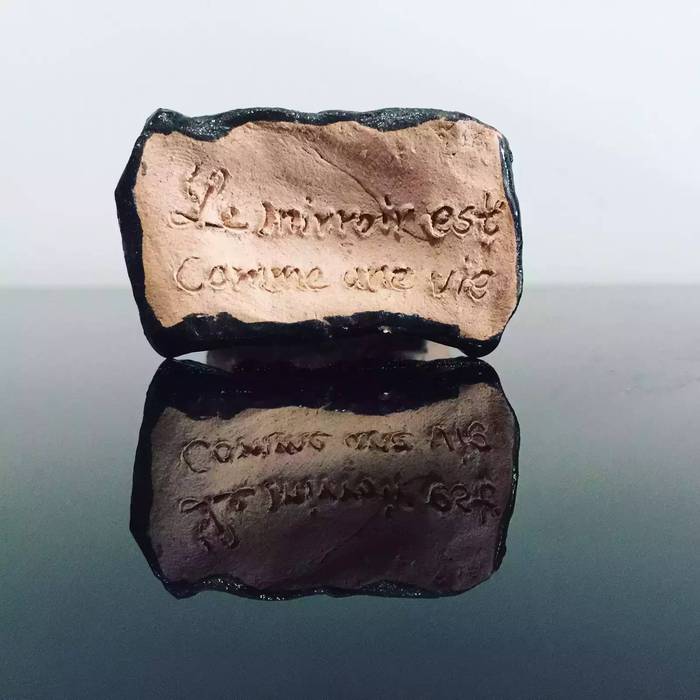 Le mirroir est
Comme une vie